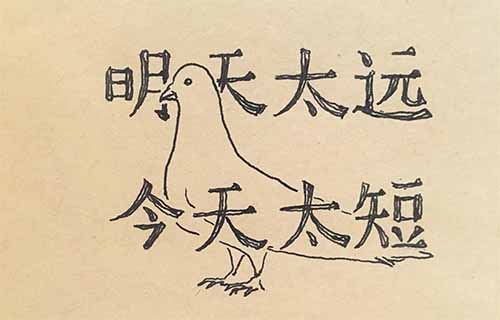 明天太远
今天太短